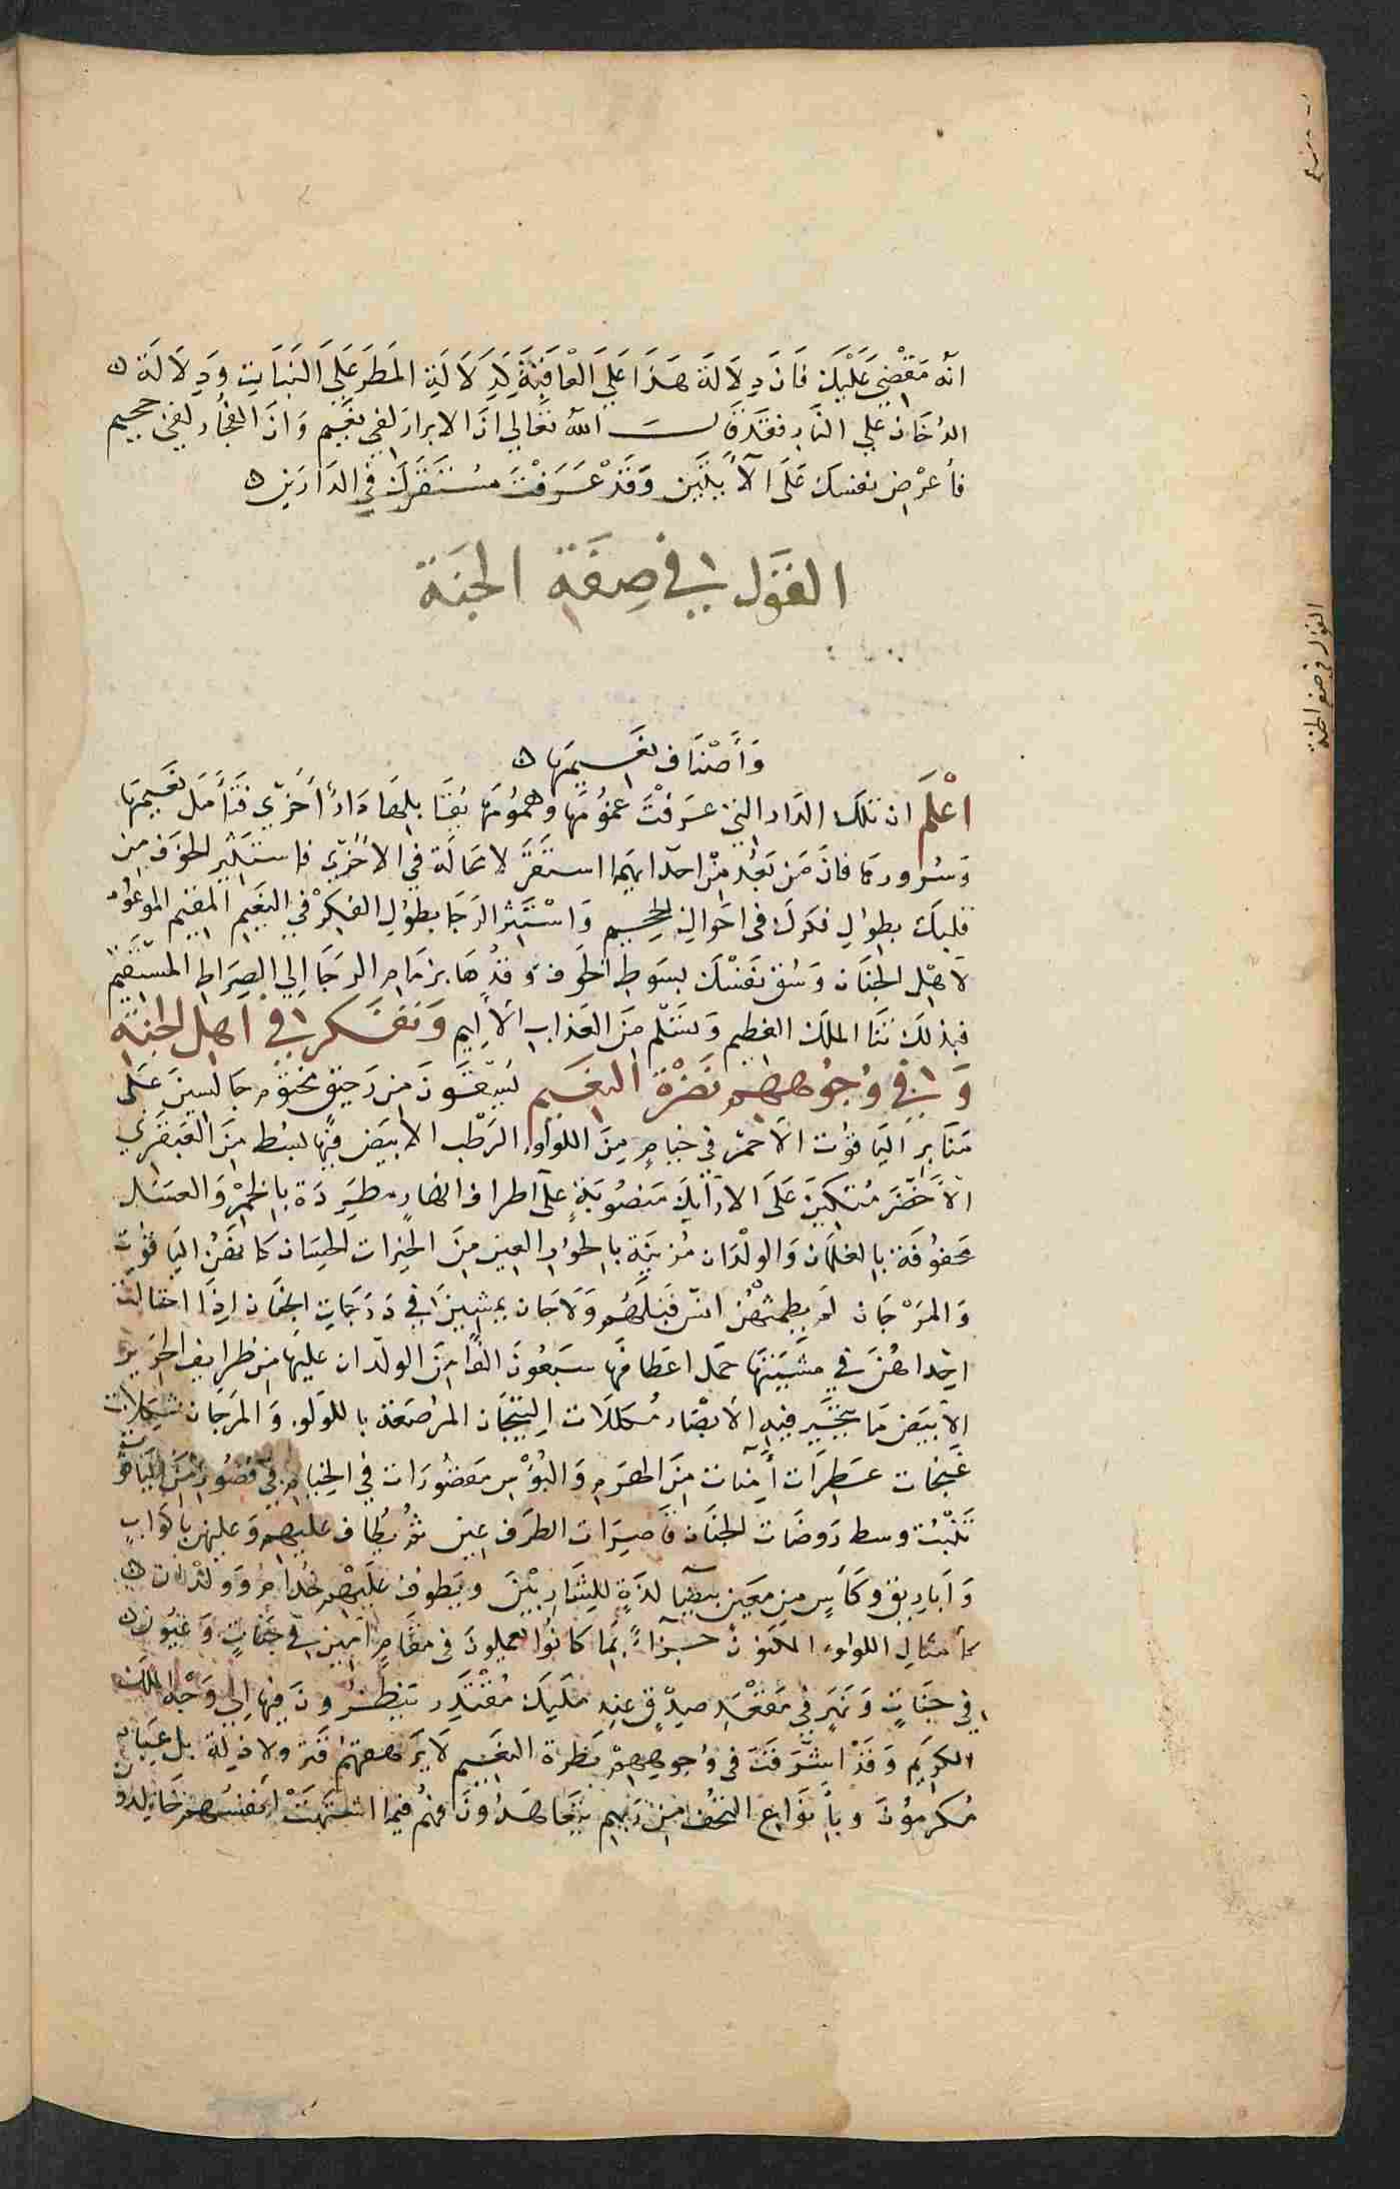 انه مَقْضِي عَلَيْكَ فَانَ دِلَالَةَ هَذَا عَلَي الْعَاقِبَةِ كَدِلَالَةِ المَطَرِ عَلَي النَبَاتِ وَدِلَالَةَ
الدُخَان عَلي النَارِ فقَد قَالَ اللهُ تعَالي انَ الابرارَ لفي نَعَيم وَانَ الفُجَار لفي جحيم
فأعرْض نفسَكَ عَلَى الآيَتَين وَقَدْ عَرَفْتَ مُسْتَقَرَكَ في الدَارَين
القَوَل في صِفَة الجَنَة
وَأَصْنَاف نَعَيمهَا
اعْلَم ان تلَكَ الدَار التي عَرفْتَ غمُومَهَا وهمُومَهَا يُقَابلهَا دَارٌ أُخرَي فتَأمَل نَعَيمَهَا
وَسُرورهَا فانَ مَن بَعُد مِنْ احدَاهِمَا استَقَرَ لا محَالَة في الاخْرَي فاستَثِر الخوَف من
قلبكَ بطولِ فكَرِكَ في اهَوالِ الجحيم وَاسْتَثِر الرَجَا بطوُلِ الفِكرْ في النَعَيم المُقيم الموعُود
لاهْل الجنَان وَسُق نَفْسَكَ بسَوطِ الخَوف وَقُدْهَا بزمَام الرجَا اِلي الصِرَاط المسْتَقيم
فبذلكَ تنَالُ الملكَ العَظيم وَتسَلم مِنَ العَذابِ الألِيم وَتفَكر في أهلِ الجَنَة
وَفي وُجُوههم نَضْرَة النَعَيم يُسْقَونَ مِن رَحيق مختوُم جَالسينَ عَلى
مَنَابر اليَاقوُت الاحمَر في خيامٍ مِنَ اللولؤ الرَطب الابيَض فيهَا بُسُط مِنَ العَبقَري
الأخضَر مُتكِينَ عَلَى الارَايك مَنصُوبَةٍ علَى اطراف انهَارٍ مطردَة بالخَمْر وَالعسَل
محَفوُفة بالغلمَان وَالولْدَان مُزينَة بالحوُر العِين مِنَ الخيرات الحِسَان كَانهَنُ اليَاقوُت
وَالمَرْجَان لمْ يطمثهُن انسٌ قبَلهُم وَلَا جَان يمشينَ في دَرجَاتِ الجنَان اِذَا اختَالتْ
احْداهُنَ في مشيَتهَا حمَل اعطافهَا سَبعُونَ الفًا مِنَ الولدَان عليهَا مِن طرايف الحَرير
الابيَض مَا تتحَيَر فيهِ الأبصَار مُكللَات بالتيجَان المرصَعَة باللولؤ وَالمرجَان شكلات
غَنجَات عَطِرَات أمِنَات مِنَ الهَرَم وَالبُؤْسِ مقصُورَات في الخيَام في قصُورٍ مِنَ اليَاقوت
بُنيَتْ وسط رَوضَات الجنَان قاصِرَات الطَرف عِين ثمُ يُطاف عليهم وَعليهن باكوَابٍ
وَأبَارِيق وكَأسٍ مِن معَين بيضَا لذَةٍ للشَارِبينَ ويَطوُف عَليهْم خُدَام وَولدَان
كأمثَالِ اللولؤ المكنوُن جَزَاءً بمَا كانوُا يعمَلونَ في مقَامٍ امين في جَنَاتٍ وَعُيُون
في جنَاتٍ وَنهَرٍ في مَقعَدِ صِدْقٍ عِند مَليكٍ مُقتَدِر يَنظُرُونَ فيهَا الي وَجْه الملكِ
الكرَيم وَقَدْ اشرَقتَ في وُجوههم نَظرة النَعَيم لا يَرهَقهُم قَتر ولا ذِلة بل عِبَاد
مُكرمُونَ وبأنوَاع التحُف مِن رَبهم يتعَاهَدُونَ فهمُ فيما اشتهَتْ أنفسُهم خَالِدون
القول في صفة الجنة